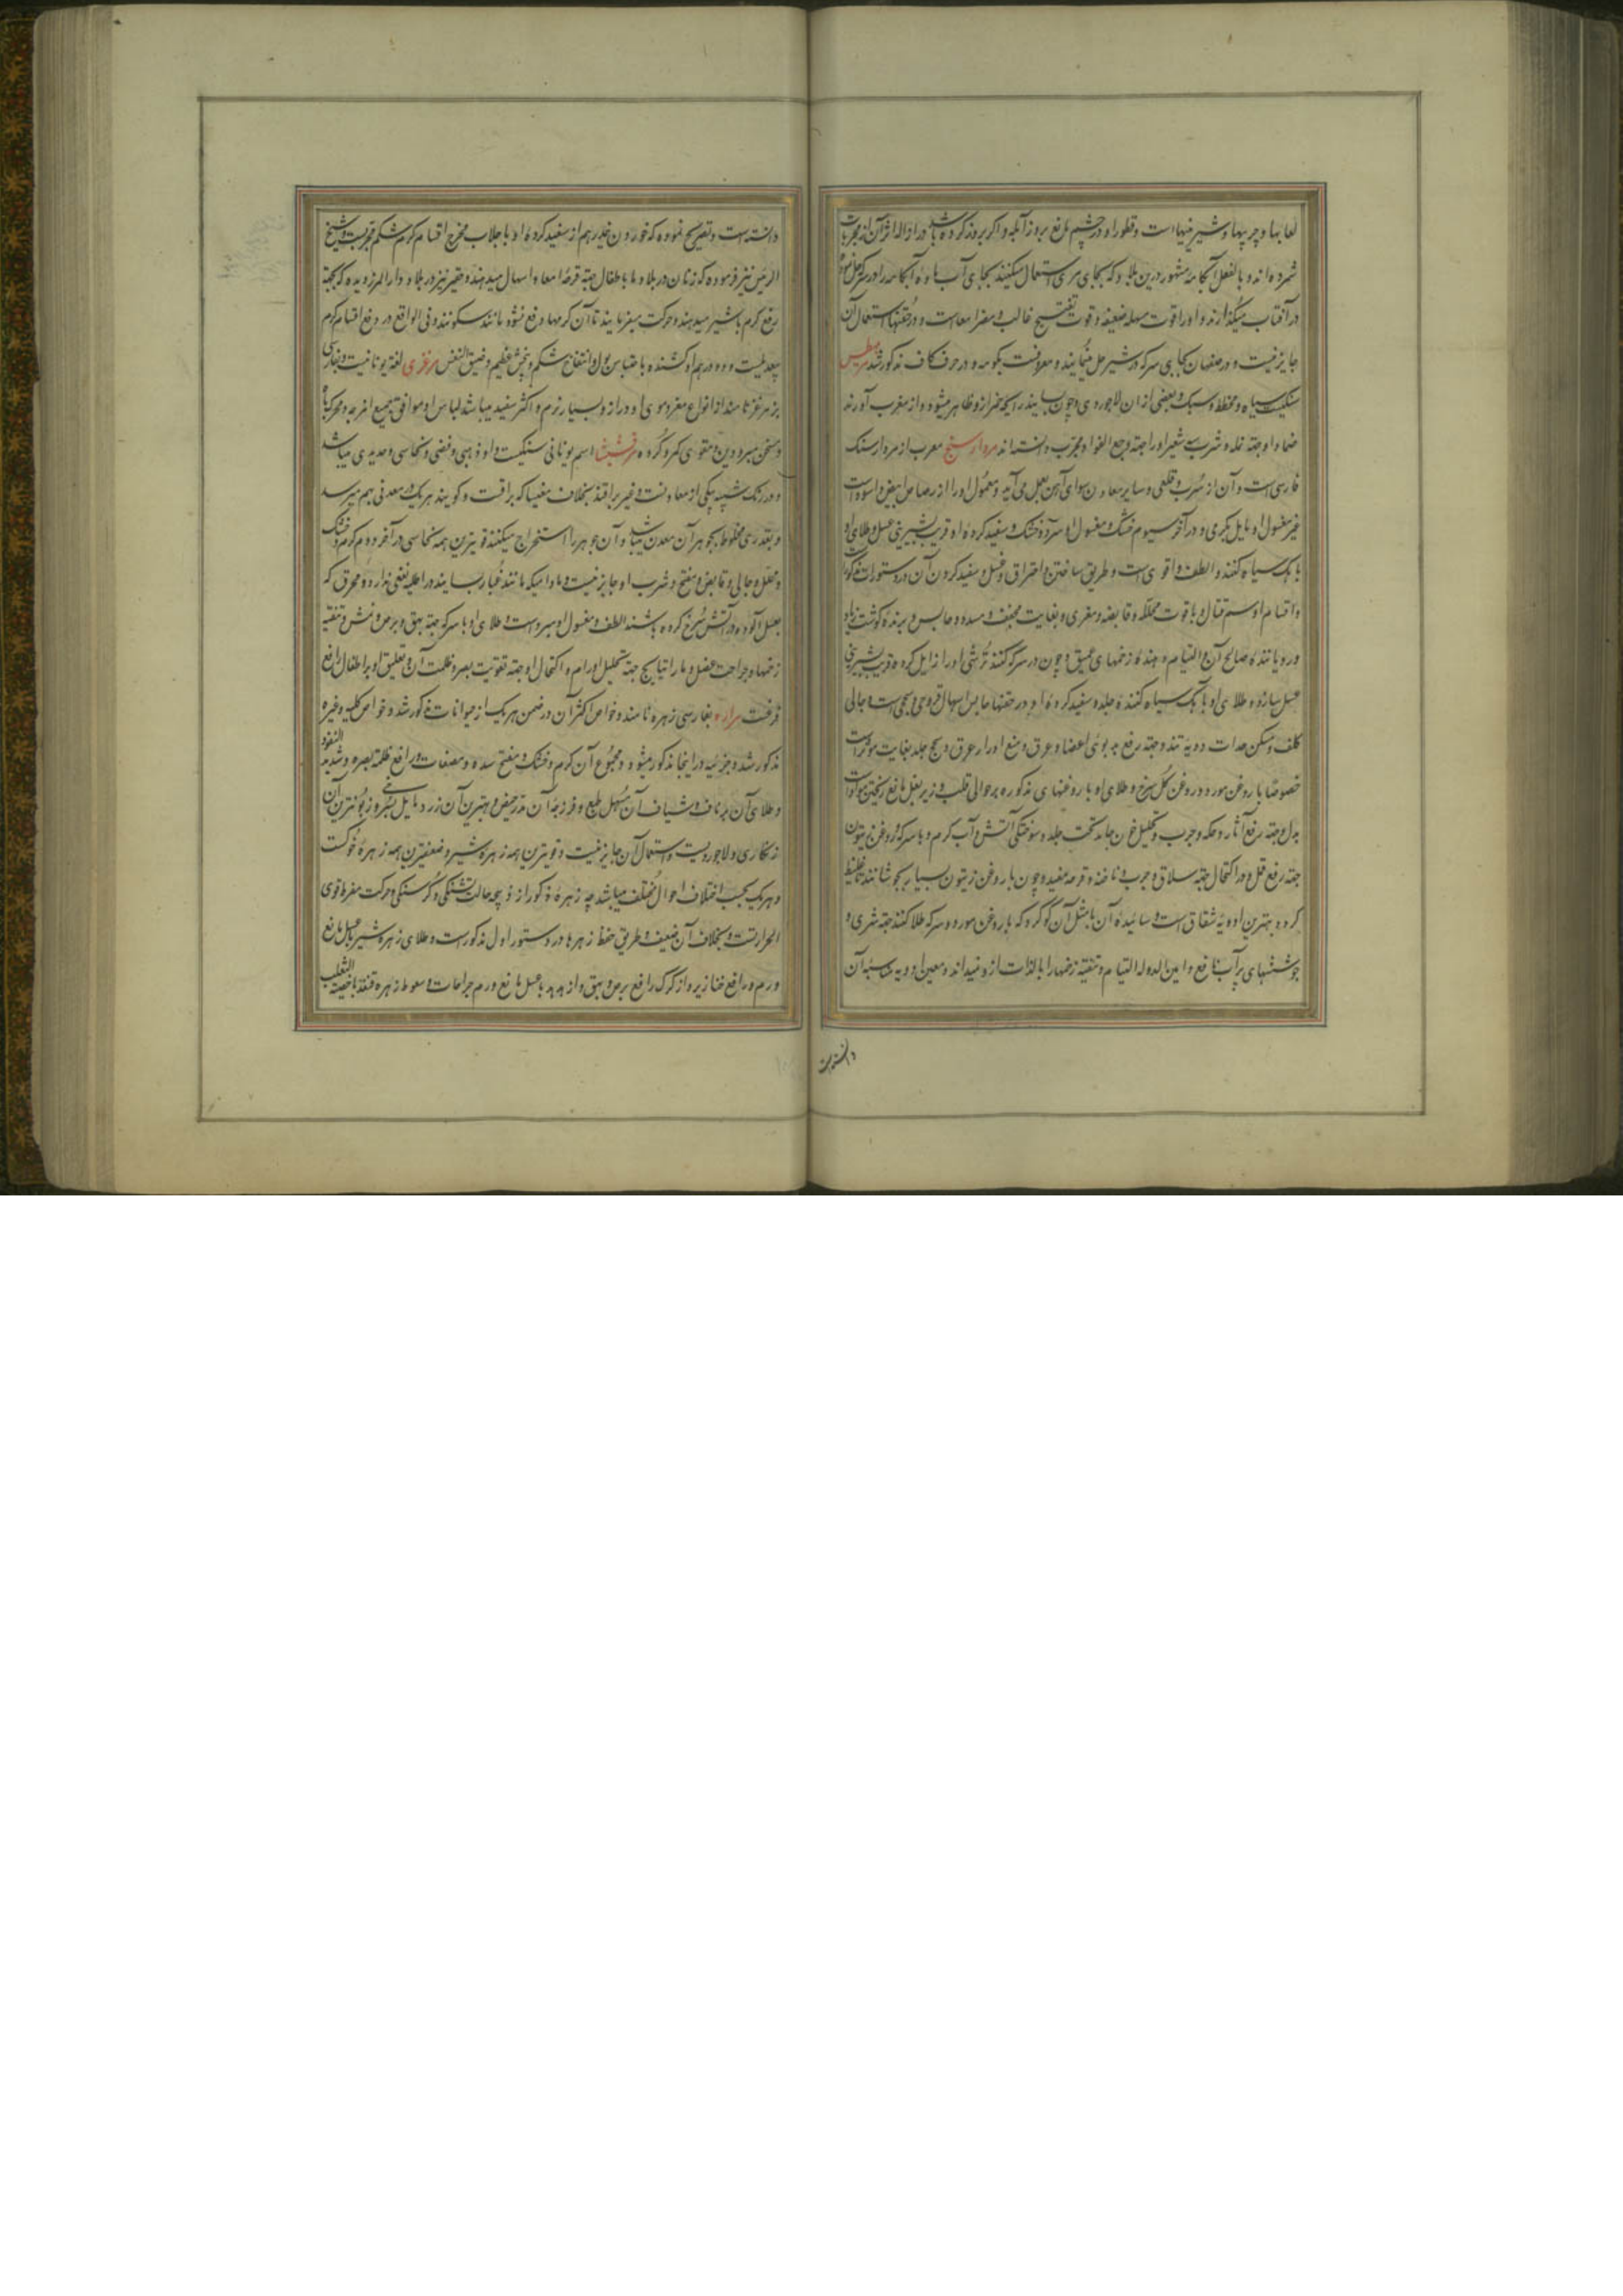 لعابها و چربیها و شیرینیها است و قطور او در چشم مانع بروز آبله و اکر بروز کرده باشد در ازالهٔ اثر آن از مجربات
شمرده اند و بالفعل آبکامه مشهور درین بلاد که بجای مری استعمال میکنند بجای آب ماده آبکامه را در سرکه
در آفتاب میکذارند و او را قوت مسهله ضعیفه و قوت تفتیح غالب و مضر امعاست و در حقنها استعمال آن
جایز نیست و در صفهان بجای سرکه در شیر حل مینمایند و معروفست بکومه و در حرف کاف مذکور شد مریطس
سنکیست سیاه و مخطط و سبک و بعضی ازان لاجوردی و چون بسایند رایحه خمر ازو ظاهر میشود و از مغرب آورند
ضماد او جهة نمله و شرب سه شعیر او را جهة وجع الفواد مجرب دانسته اند مرداسنج معرب از مردار سنک
فارسی است و آن از سرب و قلعی و سایر معادن سوای آهن بعمل می آید و معمول او را از رصاص ابیض و اسود است
غیر مغسول او مایل بکرمی و در آخر سیوم خشک و مغسول او سرد و خشک و سفید کرده او قریب بشیرینی عسل و طلای او
با آهک سیاه کنند و الطف و اقوی است و طریق ساختن و احتراق و غسل و سفید کردن آن در دستورات مذکور
و اقسام او سم قتال و با قوت محلله و قابضه و مغری و بغایت مجفف و مسدد و حابس و برنده کوشت زیاد
و رویاننده صالح آن و التیام دهنده زخمهای عمیق و چون در سرکه کنند ترشی او را زایل کرده قریب بشیرینی
عسل سازد و طلای او با آهک سیاه کننده جلد و سفید کرده او در حقنها حابس اسهال قروحی و سحجی است و جالی
کلف و مسکن حدات دویه تند و جهة رفع بد بوئی اعضا و عرق و منع ادرار عرق و سحج جلد بغایت مؤثر است
خصوصا با روغن مورد و روغن کل سرخ و طلای او با روغنهای مذکوره بر حوالی قلب و زیر بغل مانع ریختن مواد است
بدل و جهة رفع آثار و حکه و جرب و تحلیل خون جامد تحت جلد و سوختکی آتش و آب کرم و با سرکه و روغن زیتون
جهة رفع قمل و در اکتحال جهة سلاق و جرب و ناخنه و قرحه مفید و چون با روغن زیتون بسیار بجوشانند تا غلیظ
کردد بهترین ادویه شقاق است و سائیده آن با مثل آن کوکرد که با روغن مورد و سرکه طلا کنند جهة شری و
جوششهای پر آب نافع و امین الدوله التیام و تنقیه زخمها را بالذات ازو نمیداند و معین ادویه مناسبهٔ آن
دانسته است
دانسته است و تصریح نموده که خوردن نیم درهم از سفید کرده او با جلاب مخرج اقسام کرم شکم و مجرب است و شیخ
الرئیس نیز فرموده که زنان در بلاد ما باطفال جهة قرحهٔ امعا و اسهال میدهند و حقیر نیز در بلاد دار المرز دیده که بجهة
رفع کرم با شیر میدهند و حرکت میفرمایند تا آن کرمها دفع نشود مانند سکونند و فی الواقع در دفع اقسام کرم
بیعدیلست و دو درهم او کشنده باحتباس بول و انتفاخ شکم و پیچش عظیم و ضیق النفس مرغزی لغة یونانیست و بفارسی
بز مرغز نامند از انواع معز و موی او دراز و بسیار نرم و اکثر سفید میباشد لباس او موافق جمیع امزجه و محرک باه
و مسخن مبرودین و مقوی کمر و کرده مرقشیشا اسم یونانی سنکیست و او ذهبی و فضی و نحاسی و حدیدی میباشد
و در رنک شبیه بیکی از معادنست و غیر براقند بخلاف مغنیسا که براقست و کویند هر یک در معدنی بهم میرسد
و بقدری مخلوط بجوهر آن معدن میباشد و آن جوهر را استخراج میکنند قویترین همه نحاسی در آخر دوم کرم و خشک
و محلل و جالی و قابض و منضج و شرب او جایز نیست و مادامیکه مانند غبار بسایند در اطلیه نفعی ندارد و محرق که
بعسل آلوده در آتش سرخ کرده باشند الطف و مغسول او مبرد است و طلای او با سرکه جهة بهق و برص و نمش و تنقیه
زخمها و جراحت عضل و با راتیانج جهة تحلیل اورام و اکتحال او جهة تقویت بصر و ظلمت آن و تعلیق او بر اطفال رافع
فزعست مراره بفارسی زهره نامند و خواص اکثر آن در ضمن هر یک از حیوانات مذکور شد و خواص کلیه و غیره
مذکور شد و جزئیه در اینجا مذکور میشود و مجموع آن کرم و خشک و مفتح سده و مصفات و رافع ظلمة البصر و شدید النفوذ
و طلای آن بر ناف و شیاف آن مسهل طبع و فرزجهٔ آن مدر حیض و بهترین آن زرد مایل بسرخی و زبونترین آن
زنکاری و لاجوردیست و استعمال آن جایز نیست و قویترین همه زهره شیر و ضعیفترین همه زهره خوکست
و هر یک بحسب اختلاف احوال مختلف میباشد چه زهره مذکور از ذبیحه حالت تشنکی و کرسنکی و حرکت مفرط قوی
الحرارتست و بخلاف آن ضعیف و طریق حفظ زهرها در دستور اول مذکور است و طلای زهره شیر با عسل مانع
ورم و رافع خنازیر و از کرک رافع برص و بهق و از هدهد با عسل مانع ورم جراحات و سعوط زهره قنفذ باخصیة الثعلب